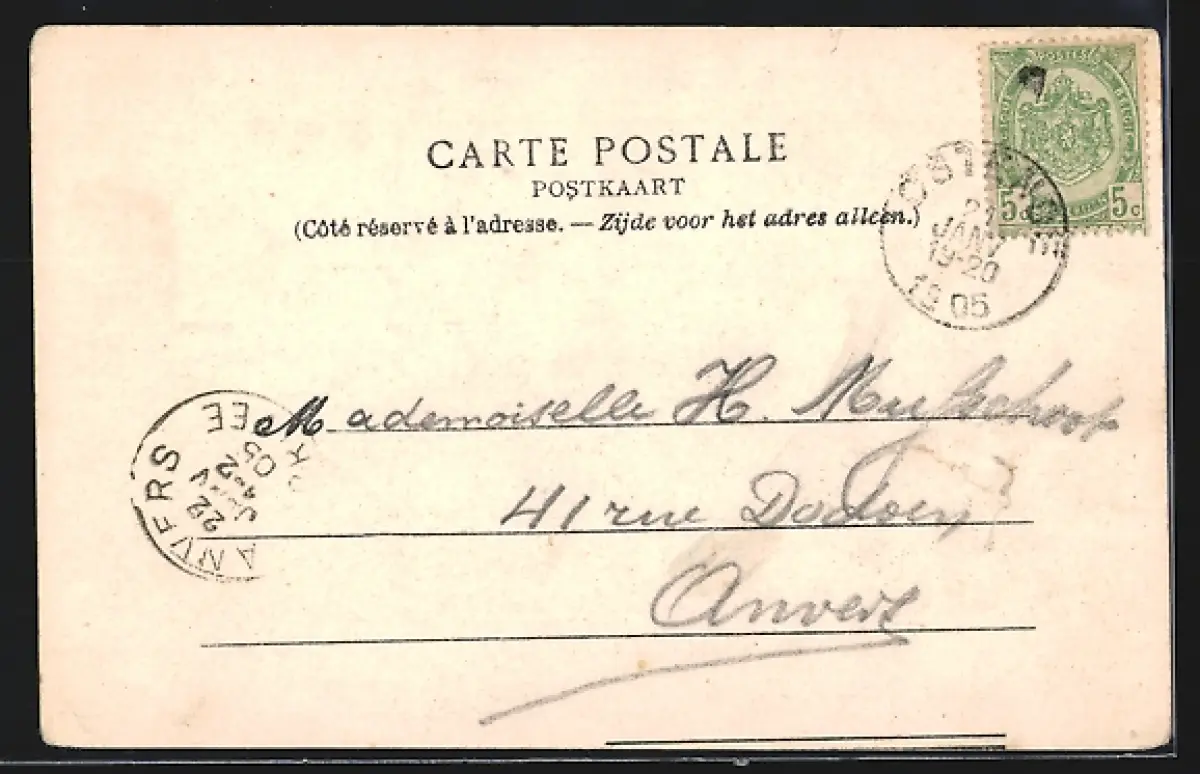 CARTE POSTALE
POSTKAART
(Côté réservé à l'adresse. — Zijde voor het adres alleen.)
POSTES
5c 5c
OSTENDE
21
JANV
19-20
1905
Mademoiselle H.
41 rue
Anvers
ANVERS
22
05